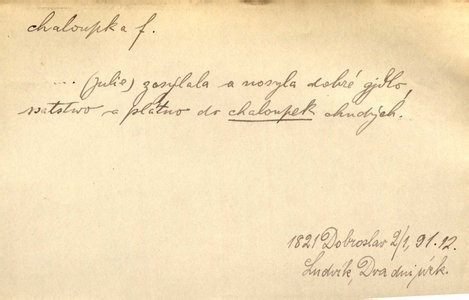 chaloupka f.
.... (Julie) zasýlala a nosyla dobré gjdlo,
satstwo a plátno do chaloupek chudých.
1821 Dobroslav 2/1, 91.12.
Ludvík, Dva dni